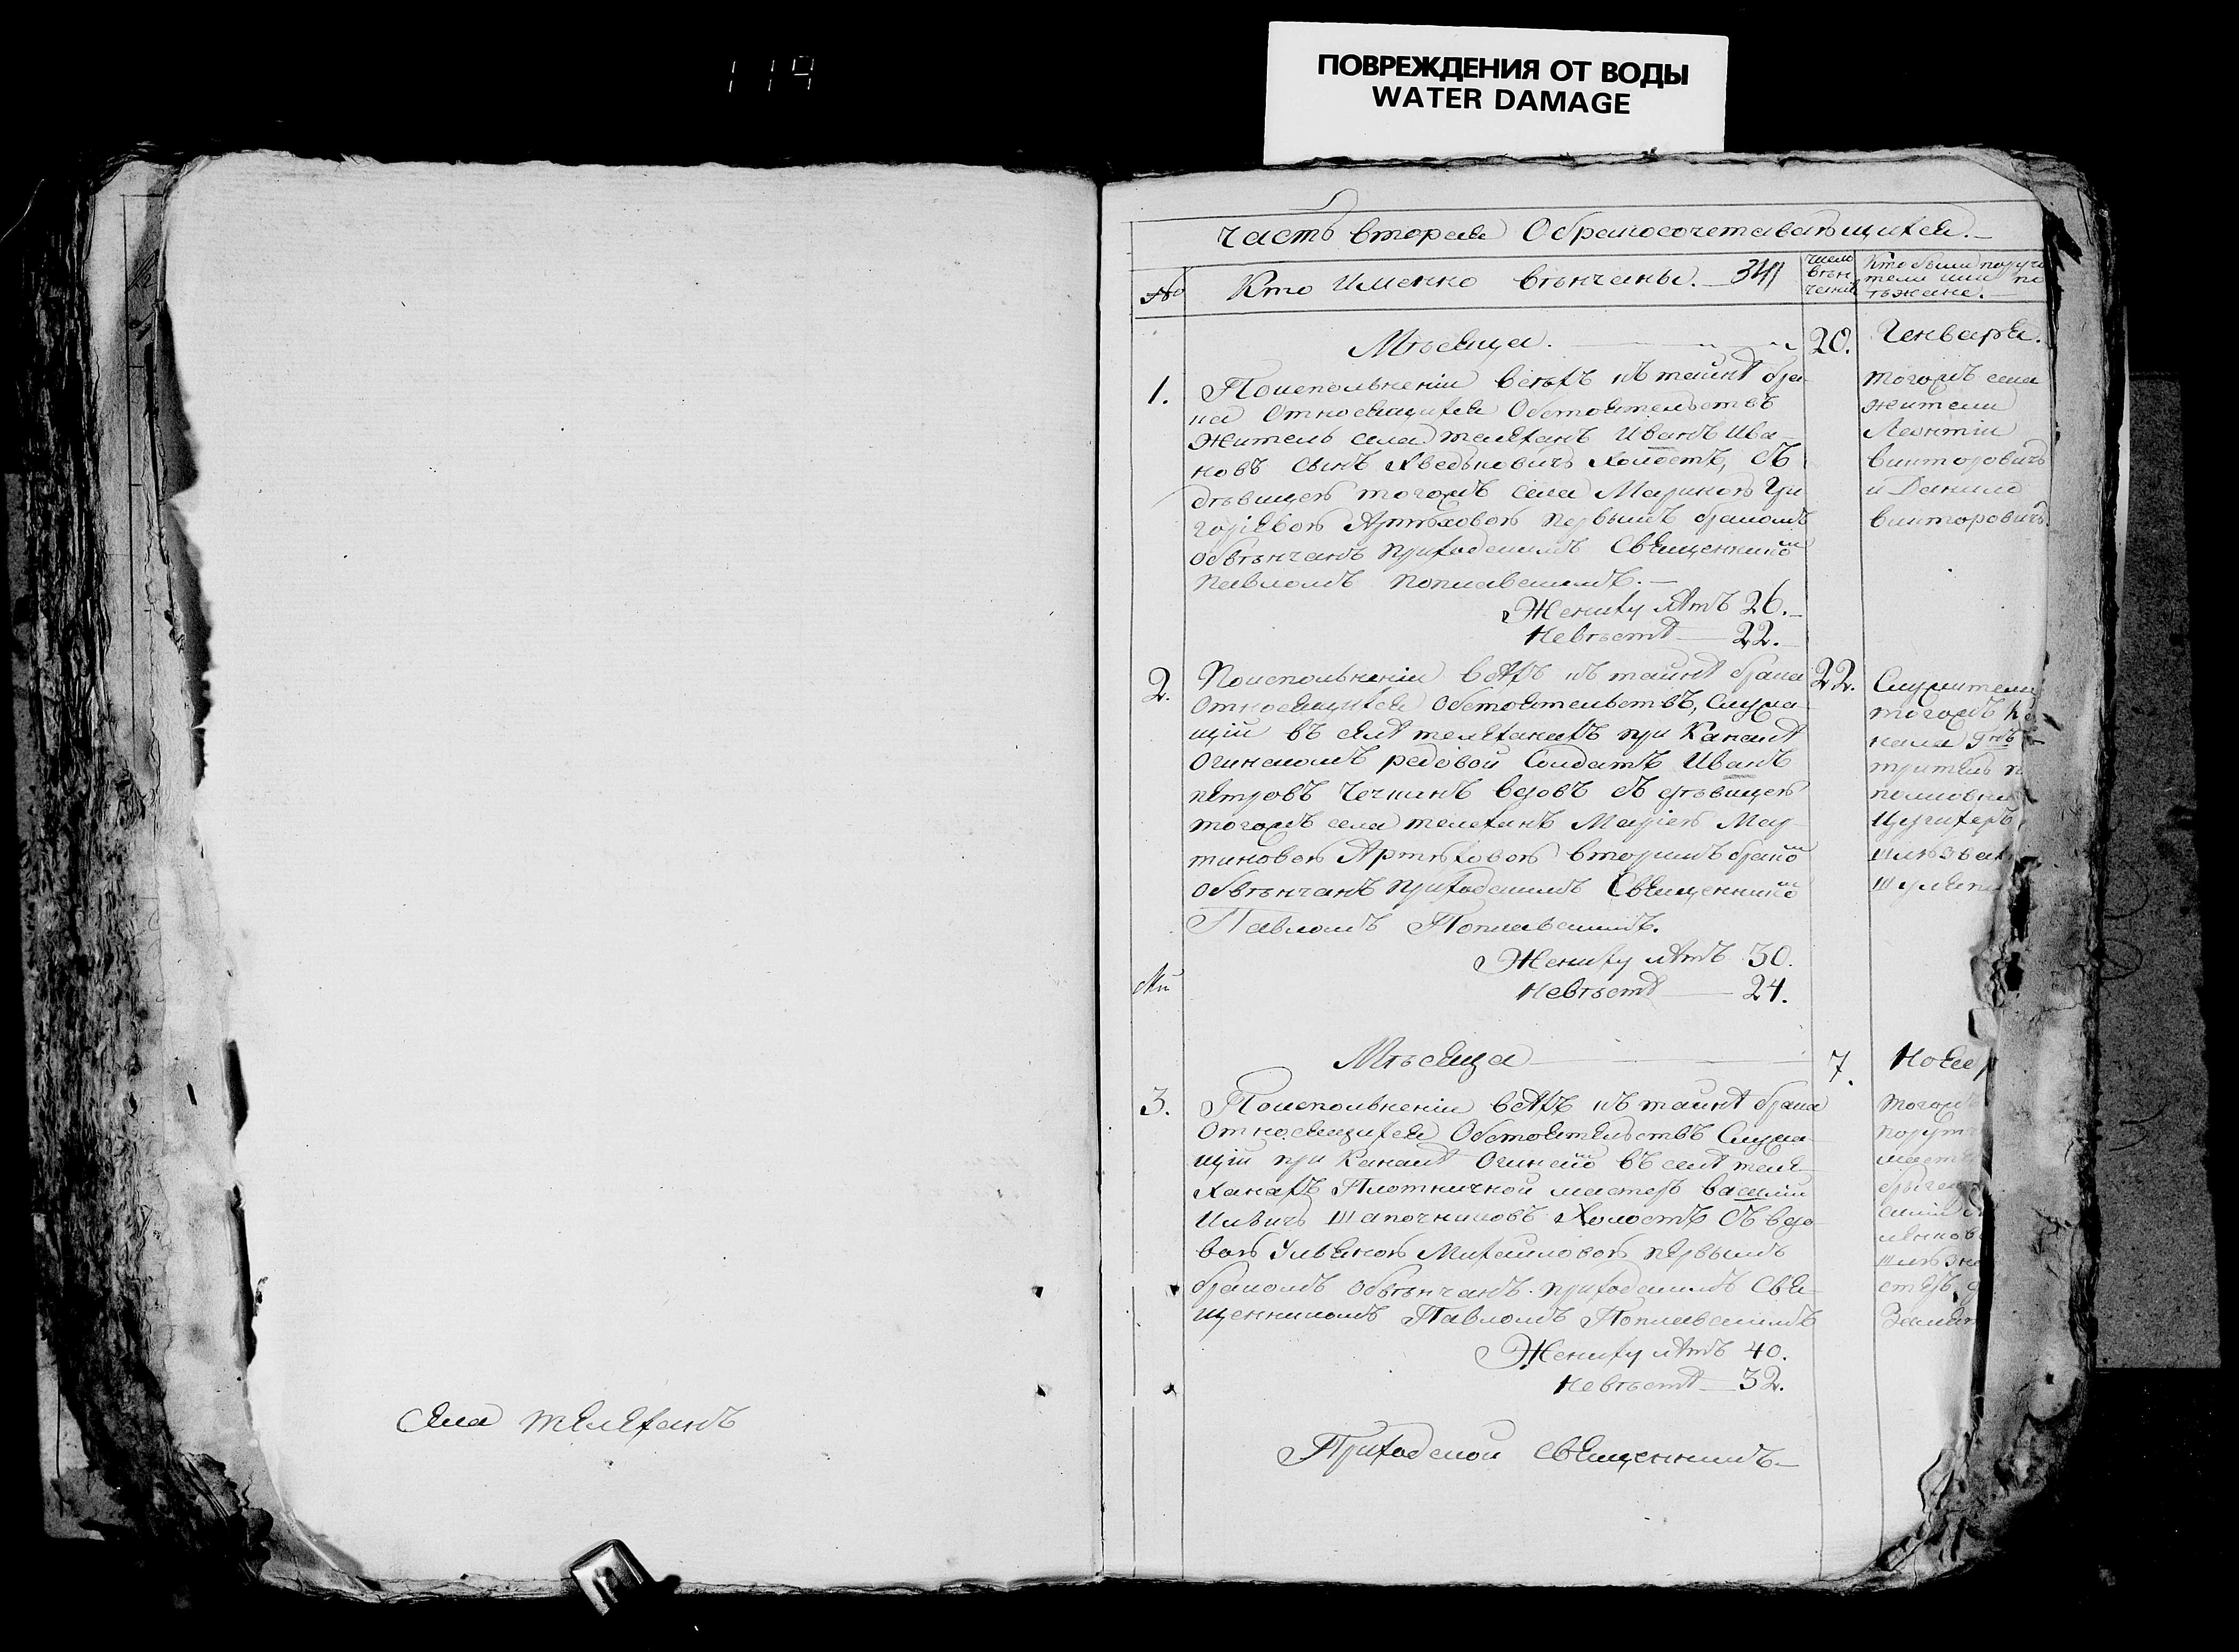 119
ПОВРЕЖДЕНИЯ ОТ ВОДЫ
WATER DAMAGE
Села телеханъ
Часть вторая О бракосочетавающихся.
№ Кто именно вѣнчаны. 341
число вѣнчанія
Кто были поручители или поѣзжане.
Мѣсяца. 20. Генваря.
1. По испольненіи всѣхъ къ таинѣ бра-
ка относящихся обстоятельствъ
житель села телеханъ Иванъ Ива-
новъ сынъ Хведьковичъ холостъ, съ
дѣвицею тогожъ села Мариною Гри
горіевою Артѣховою первымъ бракомъ
обвѣнчанъ приходскимъ священнико м
Павломъ Поплавскимъ.
Жениху лѣтъ 26.
Невѣстѣ 22.
тогожъ села
жители
Леонтій
Викторовичъ
и Данило
Викторовичъ.
2. По испольненіи всѣхъ къ таинѣ брака 22.
относящихся обстоятельствъ, служа
щій въ селѣ телеханахъ при Каналѣ
Огинскомъ редовой Солдатъ Иванъ
Петровъ Чечкинъ вдовъ съ дѣвицею
тогожъ села телеханъ Маріею Мар
тиновою Артѣховою вторымъ брако м
обвѣнчанъ приходскимъ Священнико м
Павломъ Поплавскимъ.
Жениху лѣтъ 30.
Невѣстѣ 24.
Служители
тогожъ
нала
Мѣсяца 7. Нояб
3. По испольненіи всѣхъ къ таинѣ брака
относящихся обстоятельствъ Служа-
щій при Каналѣ Огинско м въ селѣ теле
ханахъ Плотничной мастеръ Василій
Шапочниковъ холостъ съ вдо
вою Ульяною Михайловою первымъ
бракомъ обвѣнчанъ приходскимъ Свя-
щенникомъ Павломъ Поплавскимъ
Жениху лѣтъ 40.
Невѣстѣ 32.
тогож
Приходской священникъ